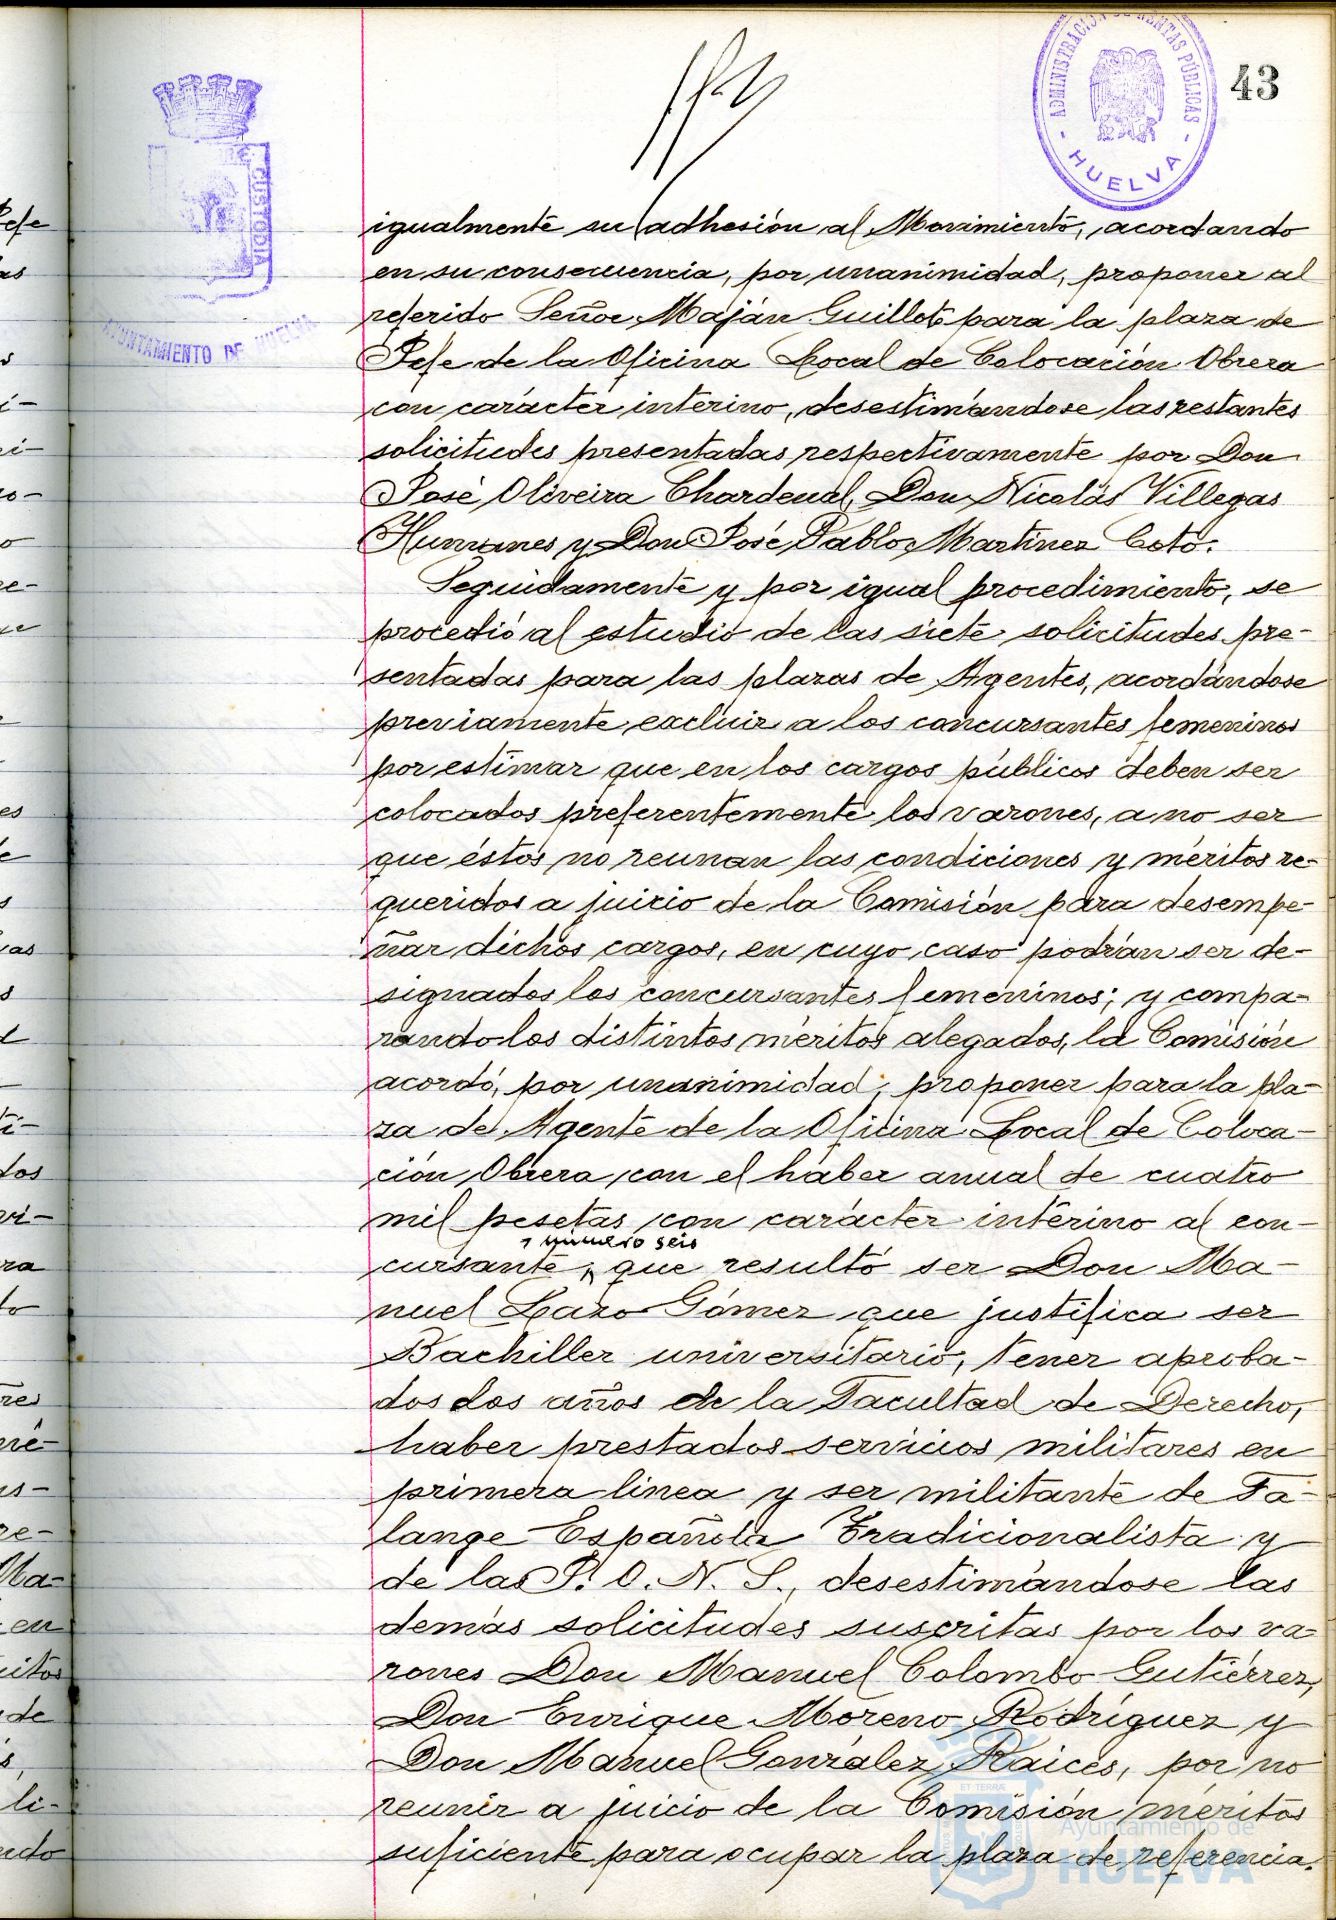 43
ADMINISTRACIÓN DE RENTAS PÚBLICAS
- HUELVA -
CUSTODIA
AYUNTAMIENTO DE HUELVA
igualmente su adhesión al Movimiento, acordando
en su consecuencia, por unanimidad, proponer al
referido Señor Maján Guillote para la plaza de
Jefe de la Oficina Local de Colocación Obrera
con carácter interino, desestimándose las restantes
solicitudes presentadas respectivamente por Don
José Oliveira Chardenal, Don Nicolás Villegas
Humanes y Don José Pablo Martínez Coto.
Seguidamente y por igual procedimiento, se
procedió al estudio de las siete solicitudes pre-
sentadas para las plazas de Agentes, acordándose
previamente excluir a los concursantes femeninos
por estimar que en los cargos públicos deben ser
colocados preferentemente los varones, a no ser
que éstos no reunan las condiciones y méritos re-
queridos a juicio de la Comisión para desempe-
ñar dichos cargos, en cuyo caso podrán ser de-
signados los concursantes femeninos; y compa-
rando los distintos méritos alegados, la Comisión
acordó, por unanimidad, proponer para la pla-
za de Agente de la Oficina Local de Coloca-
ción Obrera con el haber anual de cuatro
mil pesetas con carácter interino al con-
número seis
cursante, que resultó ser Don Ma-
nuel Lazo Gómez que justifica ser
Bachiller universitario, tener aproba-
dos dos años de la Facultad de Derecho,
haber prestados servicios militares en
primera linea y ser militante de Fa-
lange Española Tradicionalista y
de las J. O. N. S., desestimándose las
demás solicitudes suscritas por los va-
rones Don Manuel Colombo Gutiérrez,
Don Enrique Moreno Rodríguez y
Don Manuel González Raices, por no
reunir a juicio de la Comisión méritos
suficiente para ocupar la plaza de referencia.
Ayuntamiento de
HUELVA